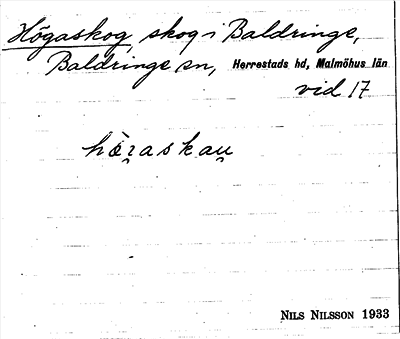 Högaskog, skog i Baldringe,
Baldringe sn, Herrestads hd, Malmöhus län
vid 17
NILS NILSSON 1933